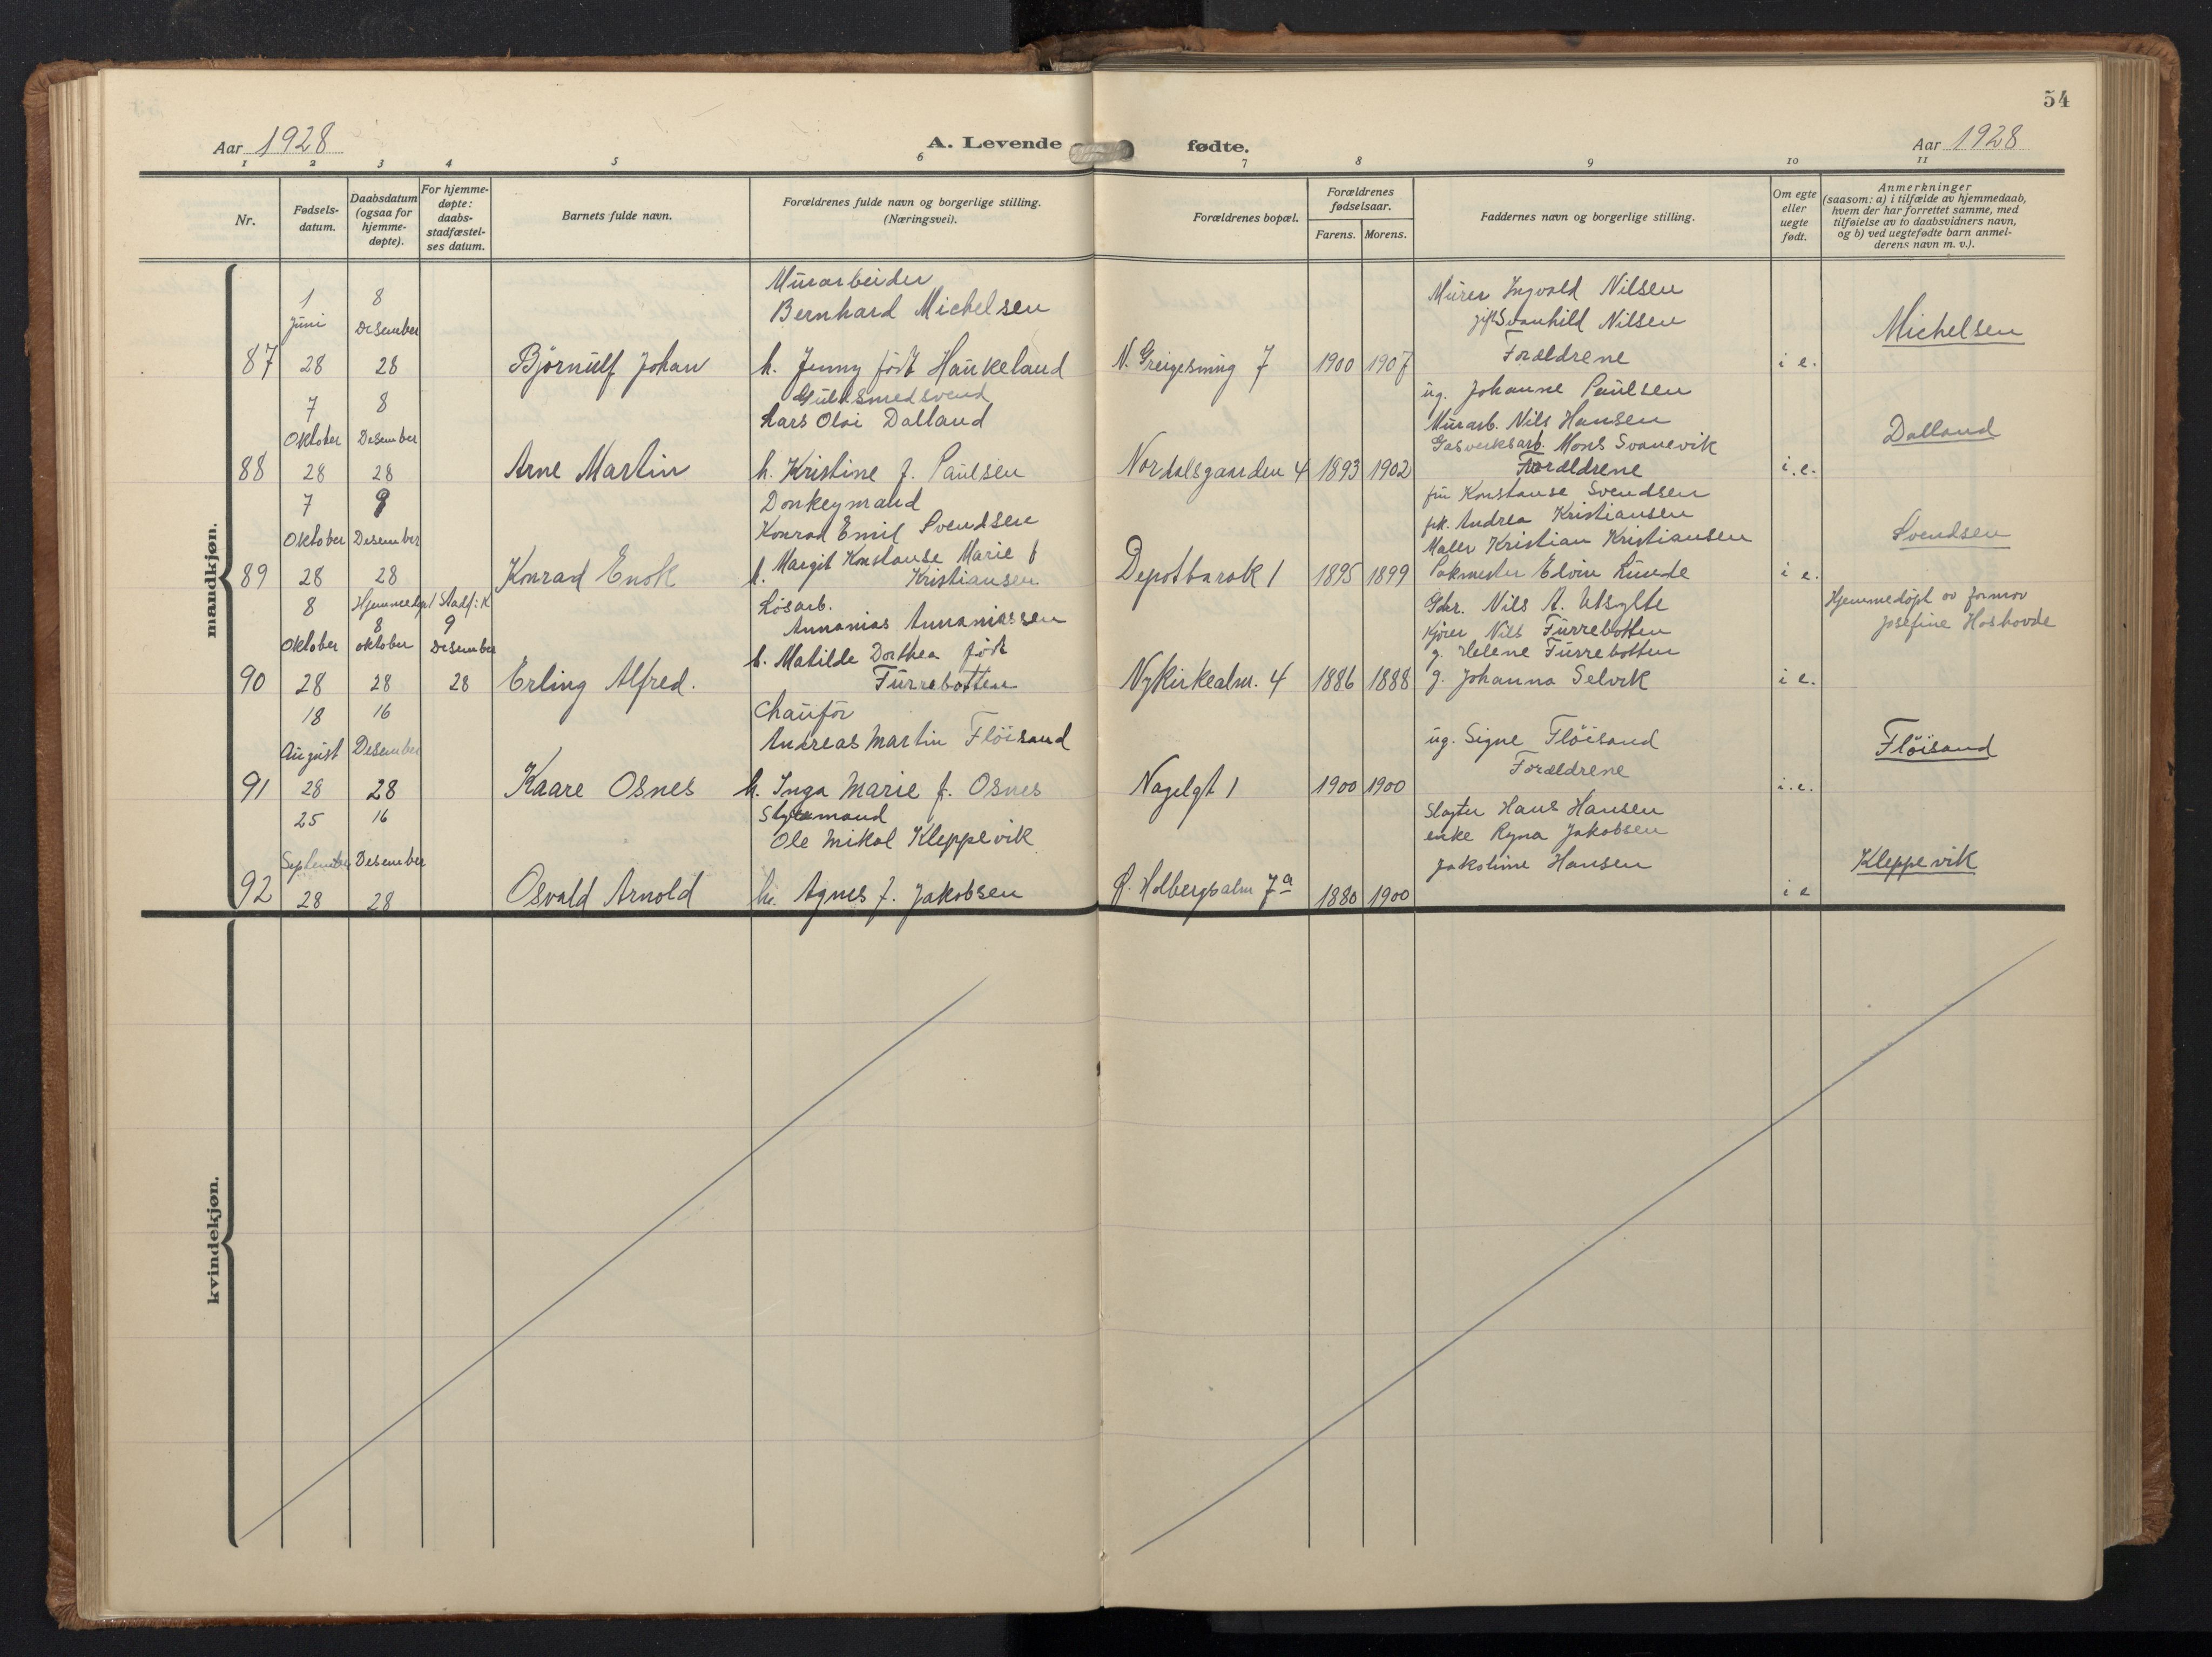 54
Aar 1928
A. Levende fødte.
Aar 1928
1 2 3 4 5 6 7 8 9 10 11
Nr.
Fødsels-
datum.
Daabsdatum
(ogsaa for
hjemme-
døpte).
For hjemme-
døpte:
daabs-
stadfæstel-
ses datum.
Barnets fulde navn.
Forældrenes fulde navn og borgerlige stilling.
(Næringsvei).
Forældrenes bopæl.
Forældrenes
fødselsaar.
Farens. Morens.
Faddernes navn og borgerlige stilling.
Om egte
eller
uegte
født.
Anmerkninger
(saasom: a) i tilfælde av hjemmedaab,
hvem der har forrettet samme, med
tilføielse av to daabsvidners navn,
og b) ved uegtefødte barn anmel-
derens navn m. v.).
mandkjøn.
87
1
Juni
28
8
Desember
28
Björnulf Johan
Murarbeider
Bernhard Michelsen
h. Jenny födt Haukeland
N. Greigesmug 7
1900 1907
Murer Ingvald Nilsen
gift Svanhild Nilsen
Forældrene
i e.
Michelsen
88
7
Oktober
28
8
Desember
28
Arne Martin
Guldsmedsvend
Lars Olai Dalland
h. Kristine f. Paulsen
Nordalsgaarden 4
1893 1902
ug. Johanne Paulsen
Murarb. Nils Hansen
Gasverksarb. Mons Svanevik
Forældrene
i. e.
Dalland
89
7
Oktober
28
9
Desember
28
Konrad Enok
Donkeymand
Konrad Emil Svendsen
h. Margit Konstanse Marie f
Kristiansen
Depotbarak 1
1895 1899
fru Konstanse Svendsen
frk. Andrea Kristiansen
Maler Kristian Kristiansen
Pakmester Elvin Lunde
i e.
Svendsen
90
8
Oktober
28
Hjemmedøpt
8
oktober
28
Stadf: K
9
Desember
28
Erling Alfred.
Løsarb.
Annanias Annaniassen
h. Matilde Dorthea födt
Furrebotten
Nykirkealm. 4
1886 1888
Gbr. Nils A. Utsylte
Kjører Nils Furrebotten
g. Helene Furrebotten
g. Johanna Selvik
i e.
Hjemmedøpt av formor
Josefine Hoshovde
91
18
August
28
16
Desember
28
Kaare Osnes
Chauför
Andreas Martin Flöisand
h. Inga Marie f. Osnes
Nagelgt 1
1900 1900
ug. Signe Flöisand
Forældrene
i. e.
Flöisand
92
25
September
28
16
Desember
28
Osvald Arnold
Styrmand
Ole Mikal Kleppevik
h. Agnes f. Jakobsen
Ø. Holbergsalm 7a
1880 1900
Slagter Hans Hansen
enke Ragna Jakobsen
Jakobine Hansen
i e
Kleppevik
kvindekjøn.